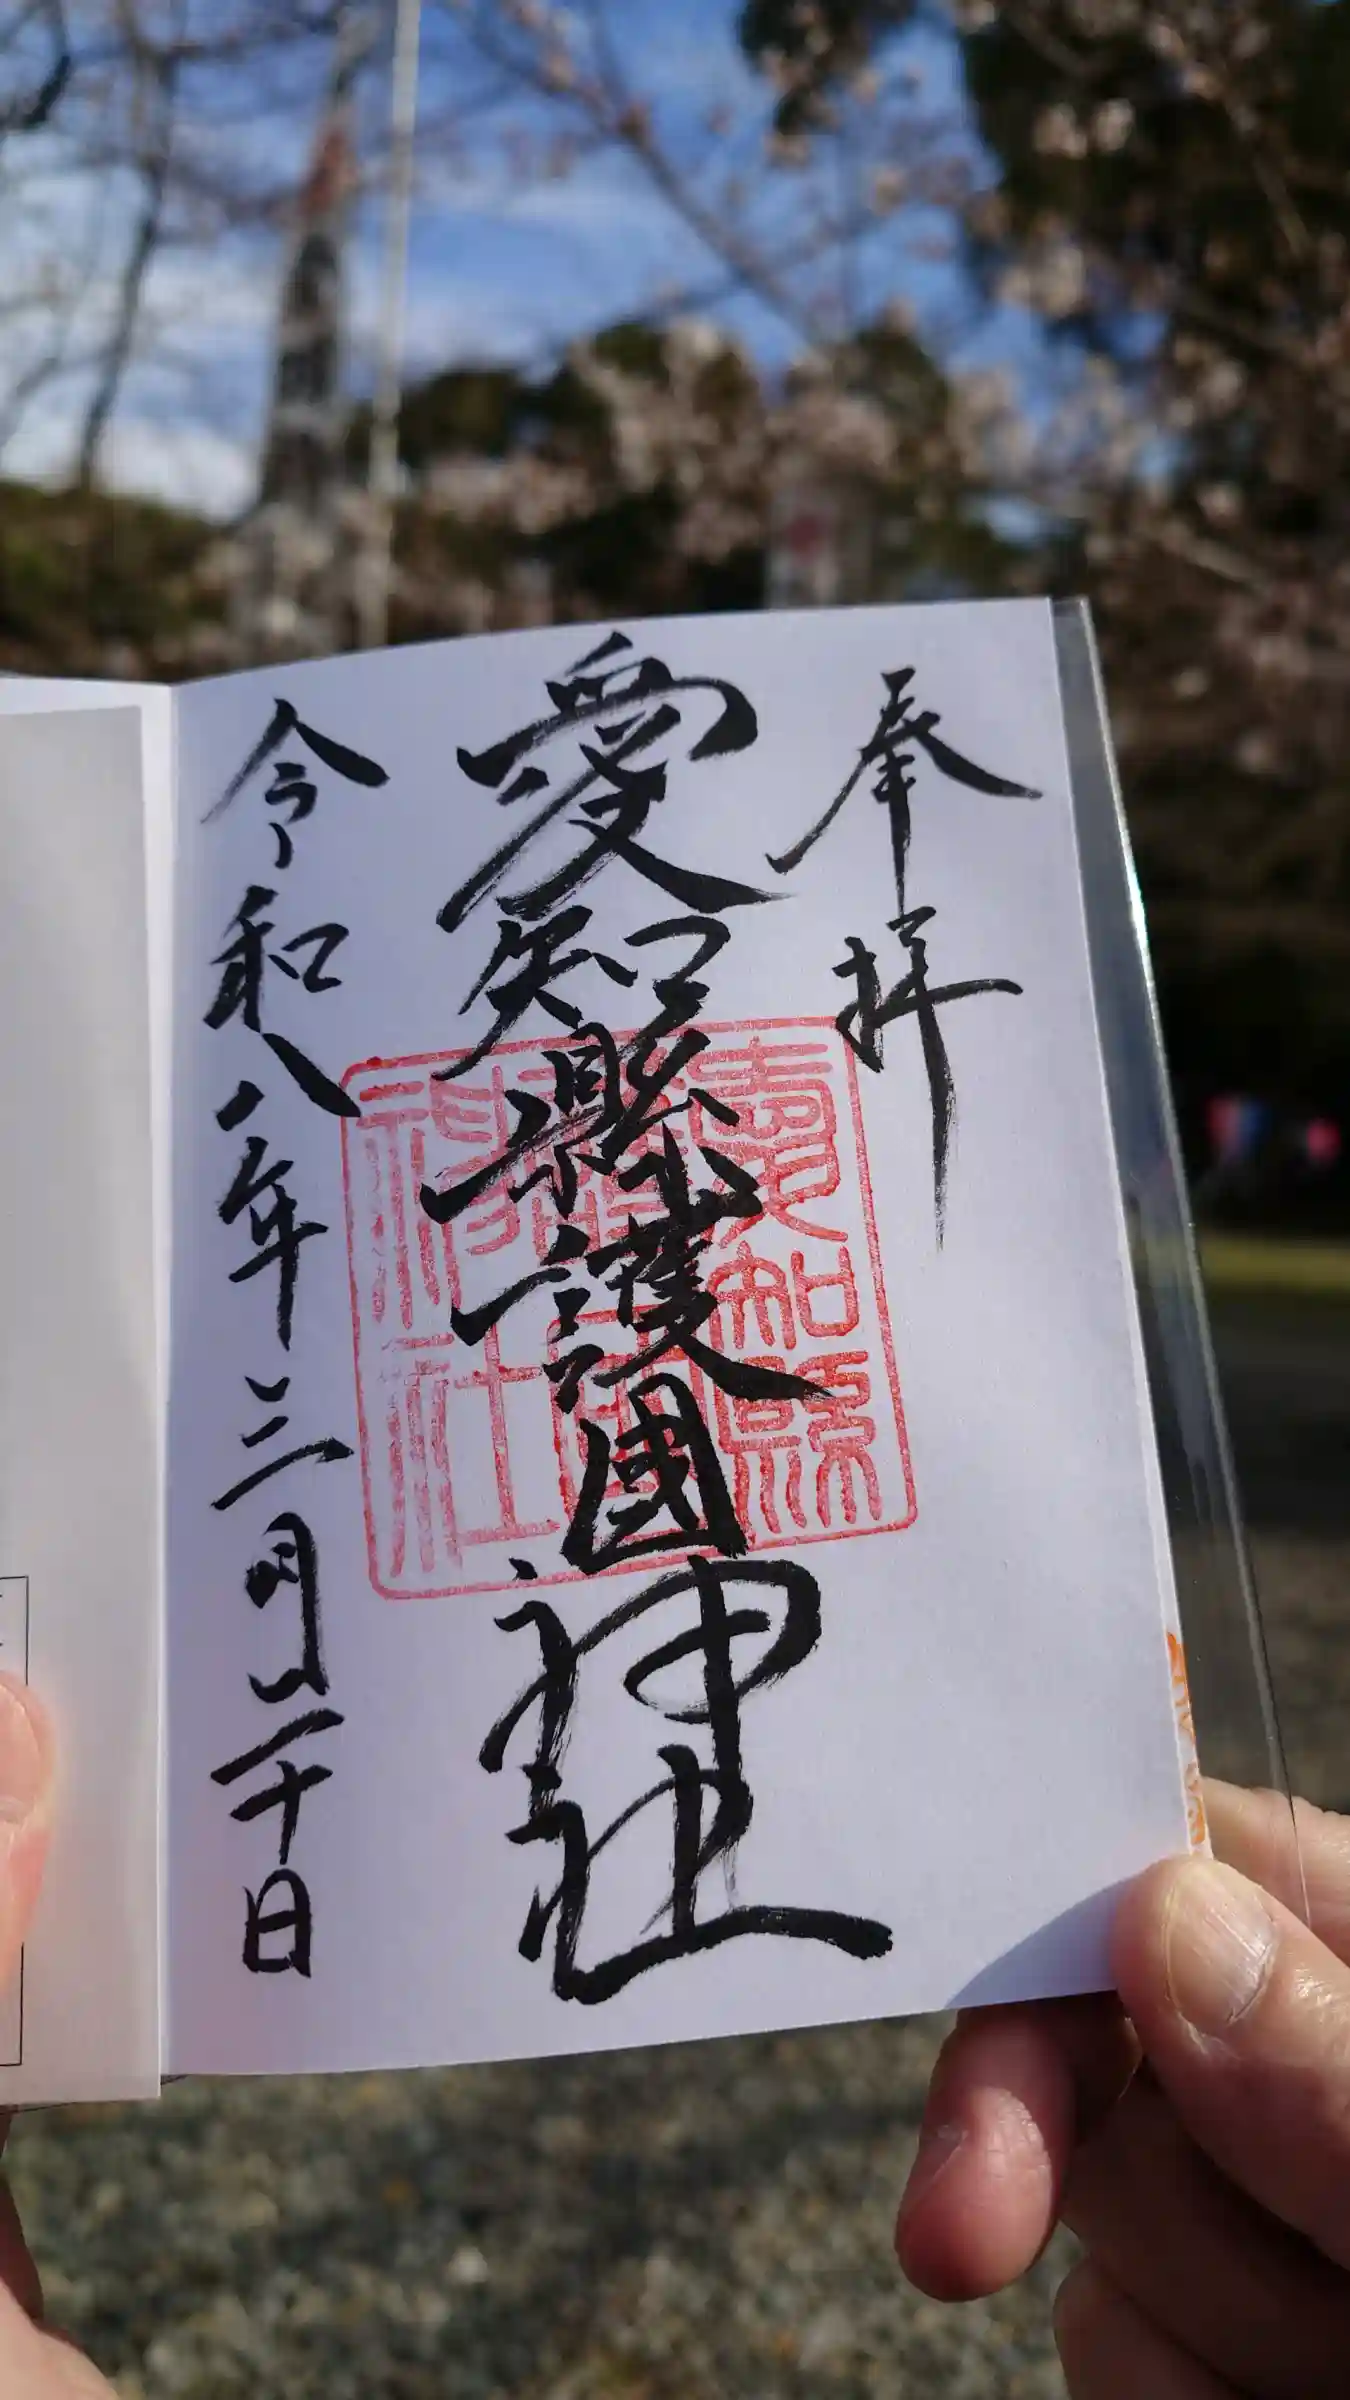 奉拝
愛知縣護國神社
愛知縣
護國
神社
令和八年三月二十日